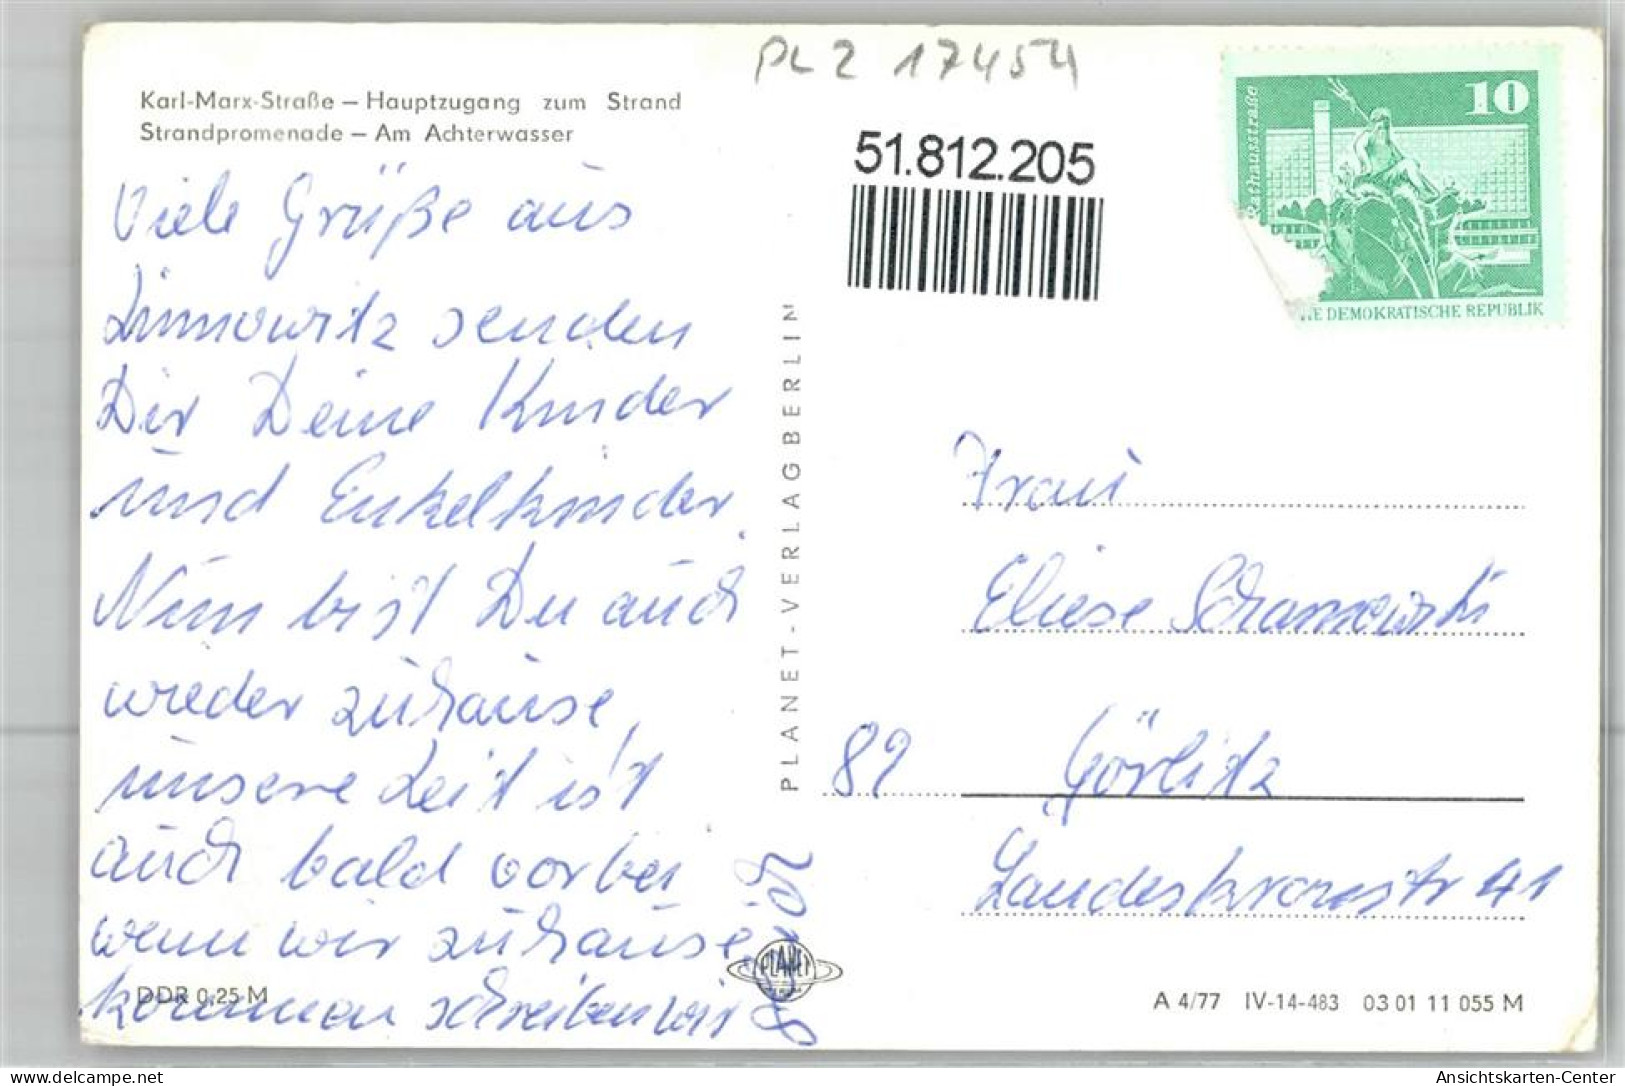 PLZ 17454
Karl-Marx-Straße – Hauptzugang zum Strand
Strandpromenade – Am Achterwasser
51.812.205
10
Rathausstraße
DEMOKRATISCHE REPUBLIK
Viele Grüße aus
Zinnowitz senden
Dir Deine Kinder
und Enkelkinder.
Nun bist Du auch
wieder zuhause,
unsere Zeit ist
auch bald vorbei
wenn wir zuhause
kommen schreiben wir
PLANET-VERLAG BERLIN
Frau
Eliese
89 Görlitz
Landeskronstr 41
PLANET
DDR 0,25 M
A 4/77 IV-14-483 03 01 11 055 M
www.delcampe.net
Ansichtskarten-Center